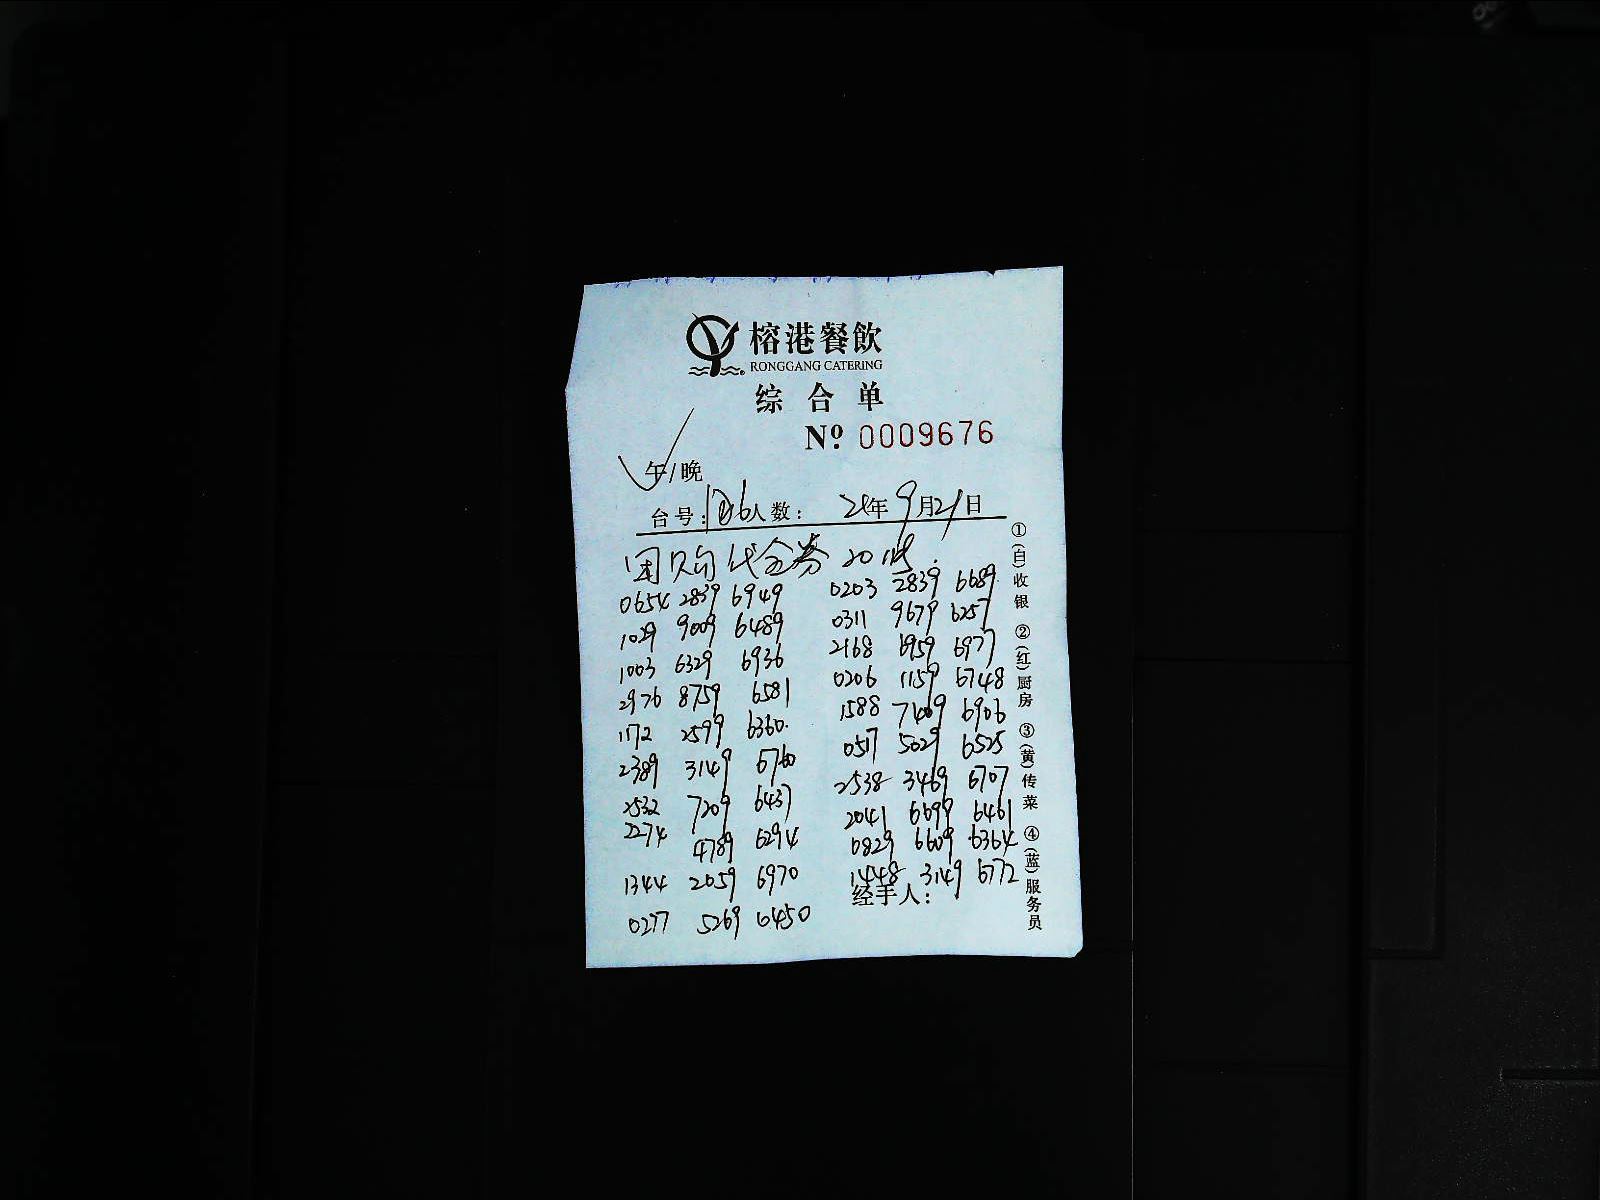 榕港餐飲
RONGGANG CATERING
综合单
Nº 0009676
午/晚
台号: 人数: 21年9月21日
团购代金券 20张.
0654 2839 6949 0203 2839 6689
1029 9009 6489 0311 9679 6257
1003 6329 6936 2168 6959 6977
2976 8759 6581 0206 1159 6748
1172 2599 6360 1588 7409 6906
2389 3149 6760 0517 5029 6525
2532 7209 6437 2538 3469 6707
2274 4789 6294 2041 6699 6461
1344 2059 6970 0829 6609 6364
0277 5269 6450 1448 3149 6772
经手人:
①(白)收银 ②(红)厨房 ③(黄)传菜 ④(蓝)服务员